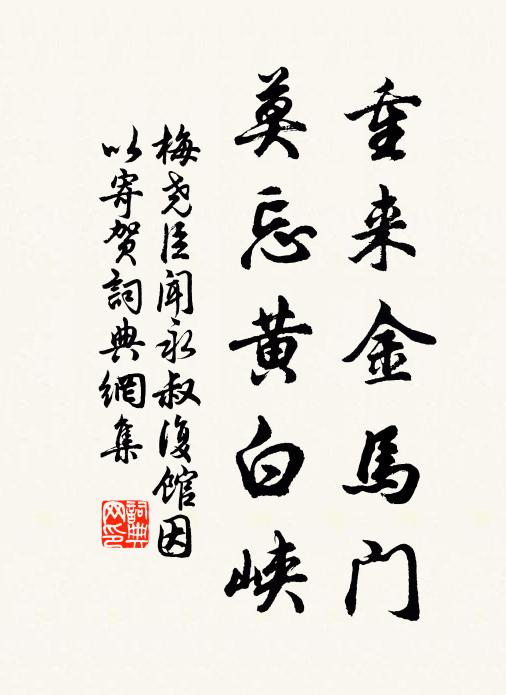 重来金馬门
莫忘黄白峡
梅尧臣闻永叔復馆因
以寄贺詞典網集
詞典网印